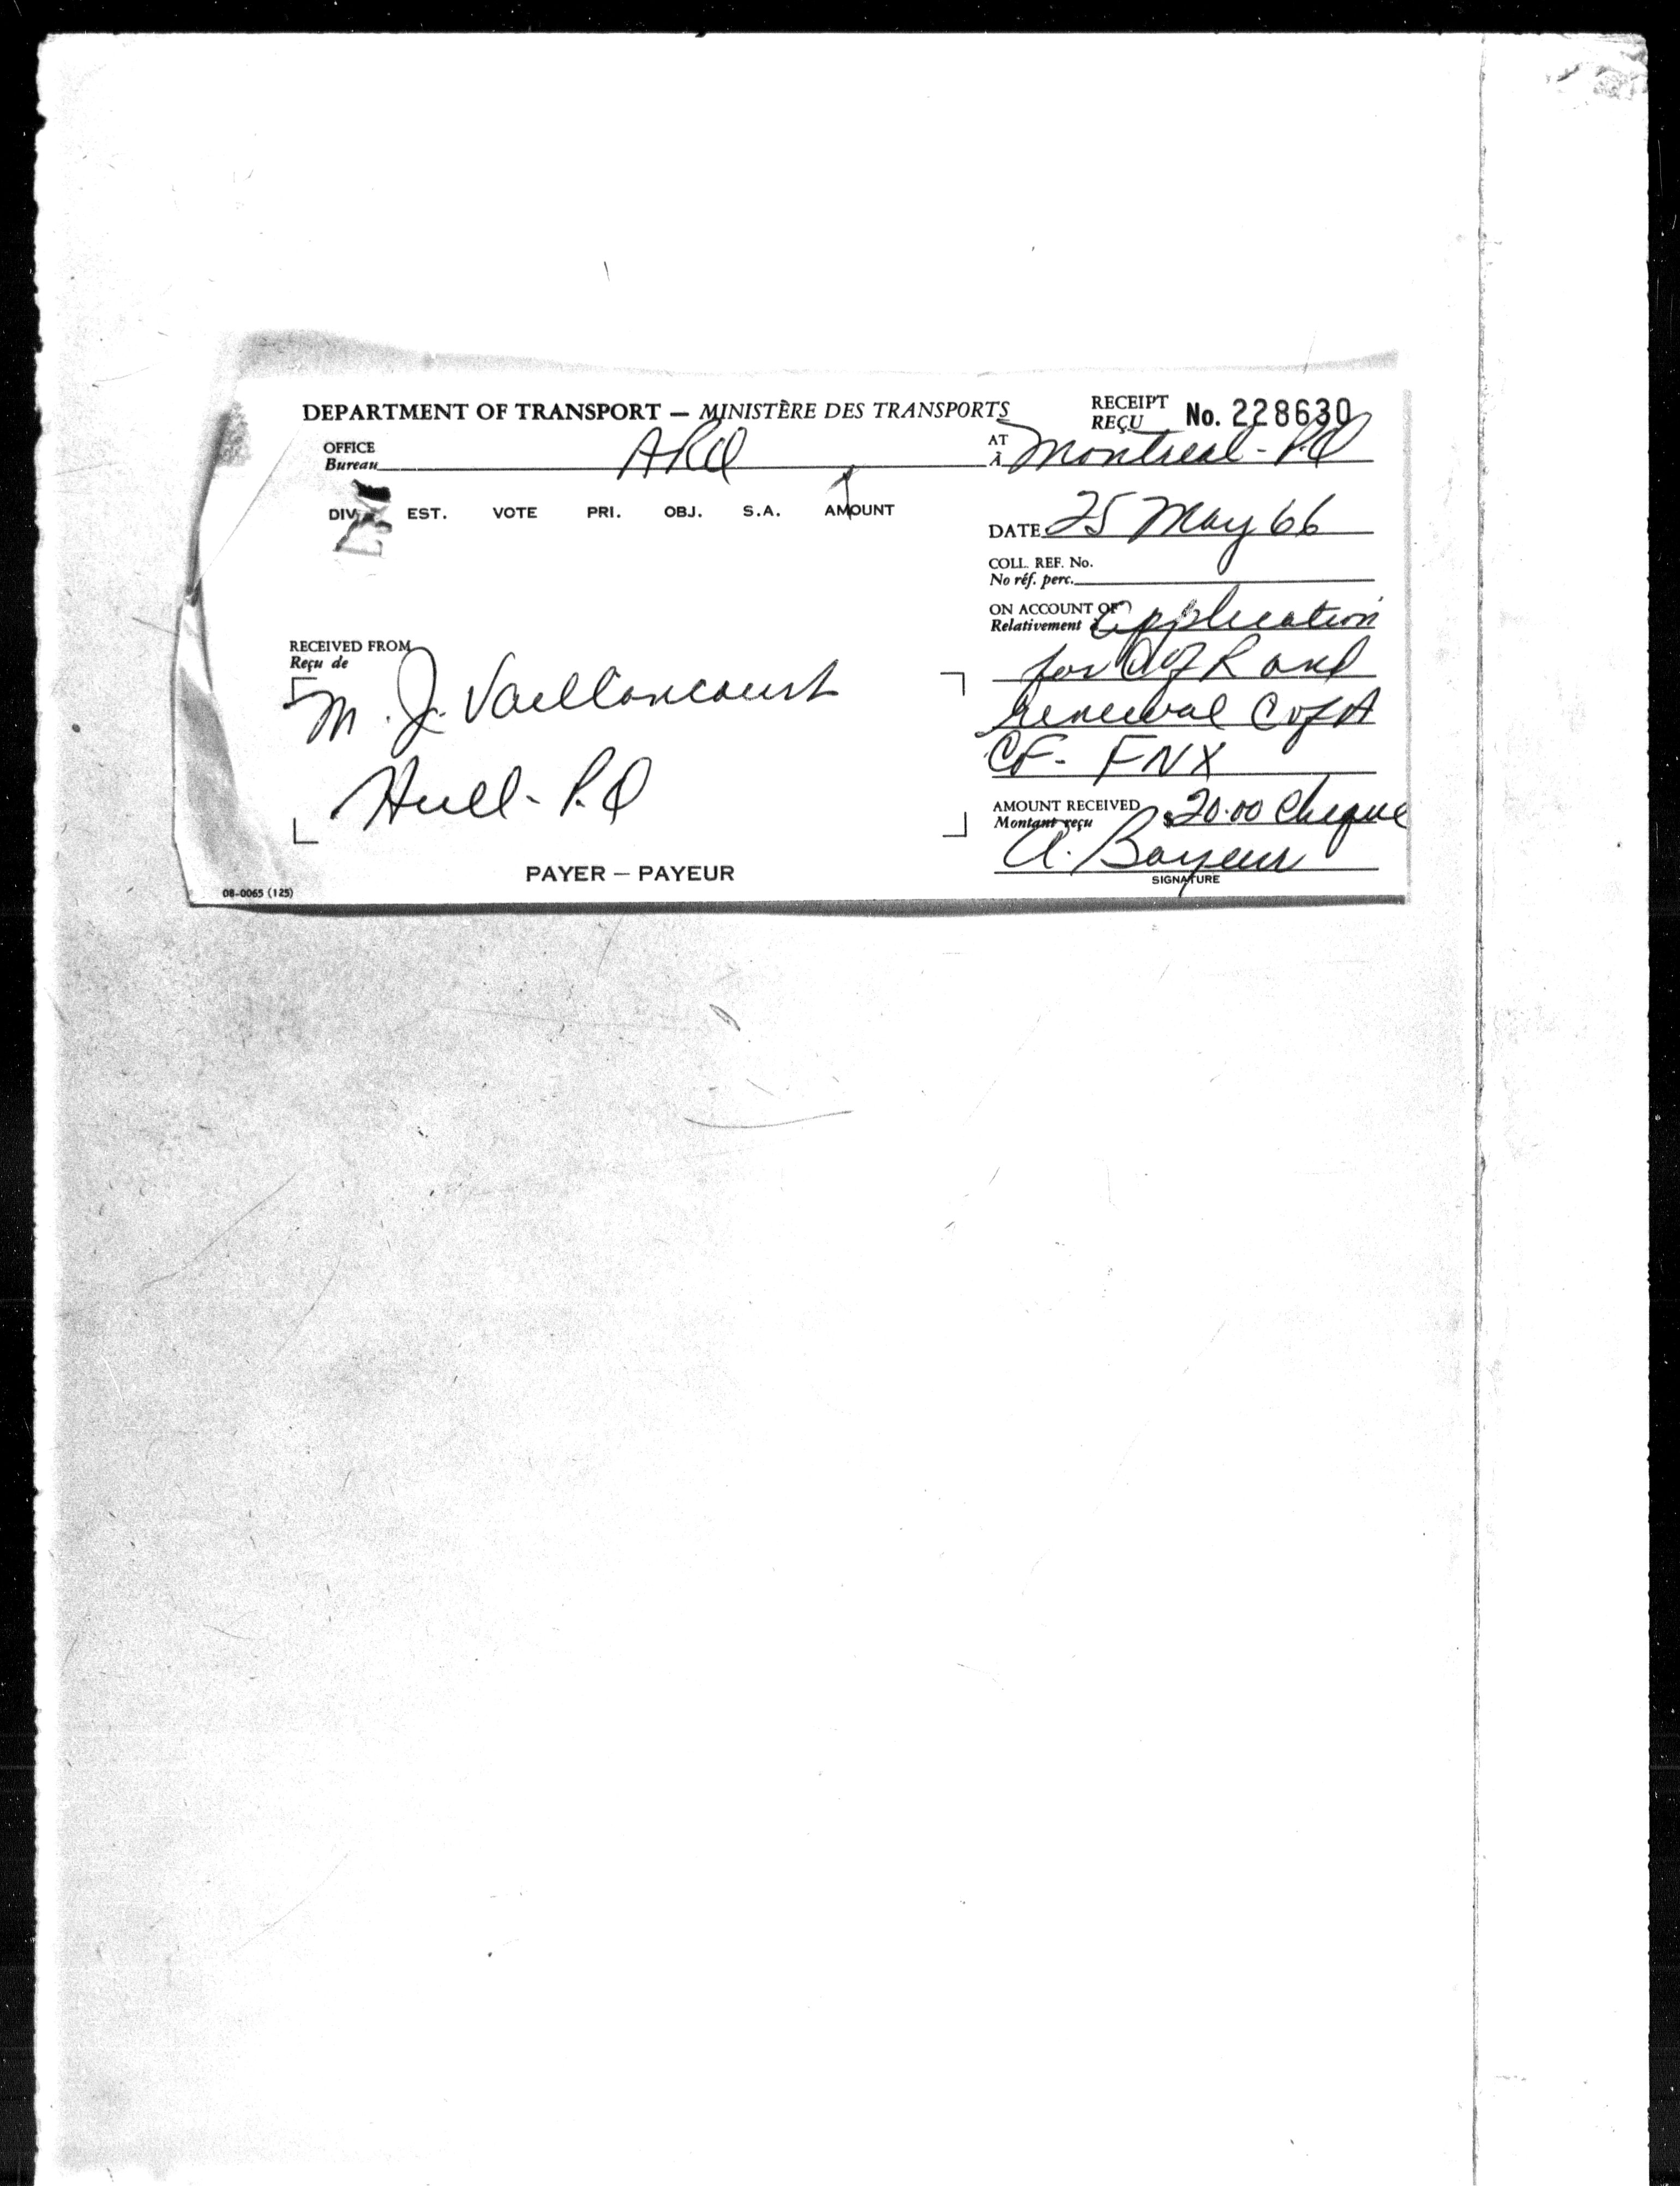 DEPARTMENT OF TRANSPORT — MINISTÈRE DES TRANSPORTS
RECEIPT
REÇU No. 228630
OFFICE
Bureau
AT
À Montreal - P.Q
DIV. EST. VOTE PRI. OBJ. S.A. AMOUNT
DATE 25 May 66
COLL. REF. No.
No réf. perc.
ON ACCOUNT OF
Relativement à Application
for C of R and
renewal C of A
CF- FNX
RECEIVED FROM
Reçu de
M. J. Vaillancourt
Hull - P.Q
AMOUNT RECEIVED
Montant reçu $20.00 Cheque
A. Boyeur
SIGNATURE
PAYER — PAYEUR
08-0065 (125)